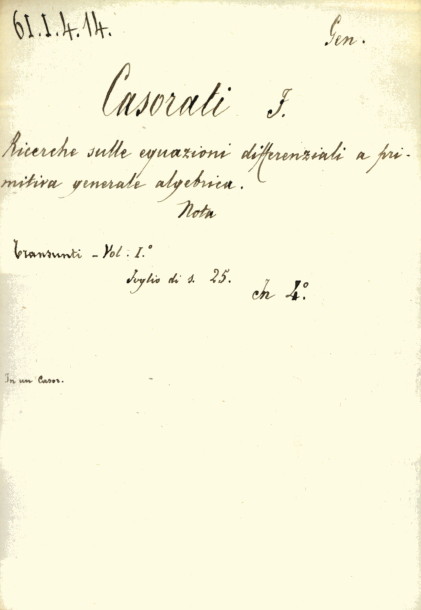 61.I.4.14. Gen.
Casorati F.
Ricerche sulle equazioni differenziali a pri-
mitiva generale algebrica.
Nota
Transunti - Vol: I.°
Foglio di s. 25. in 4.°
In un Casor.